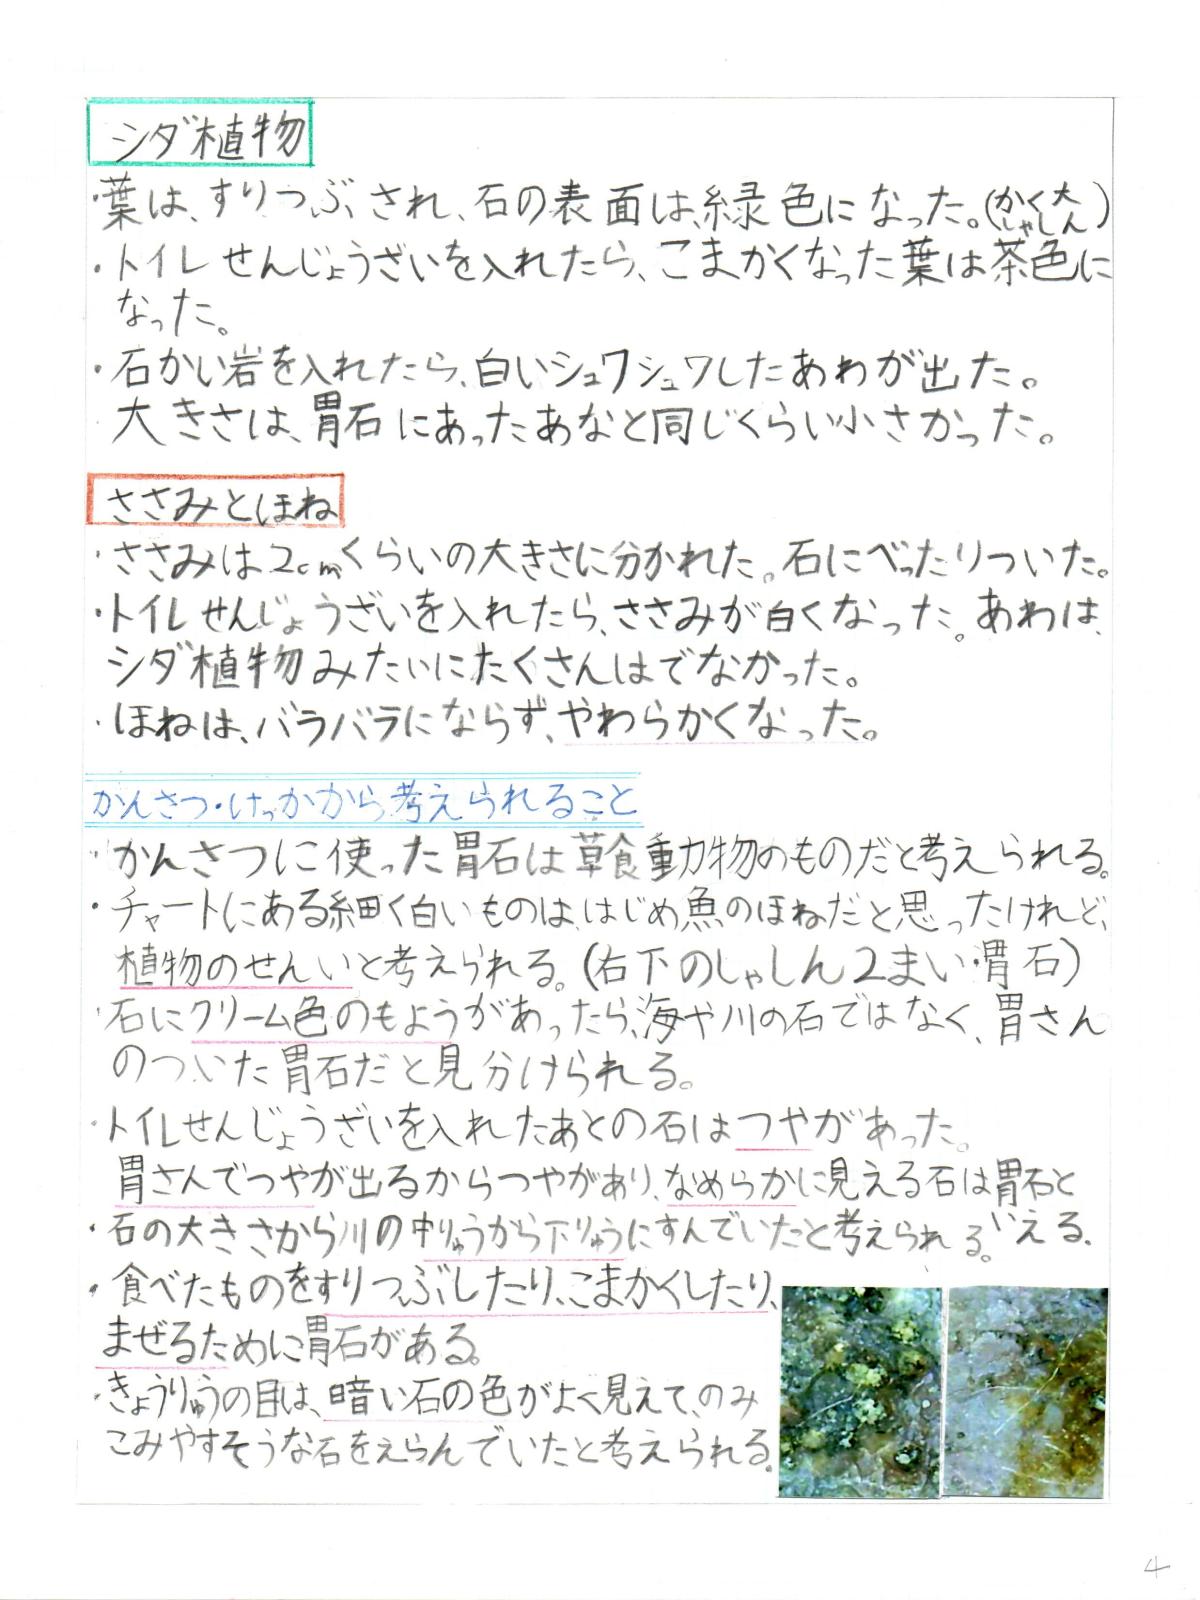 シダ植物
・葉は、すりつぶされ、石の表面は、緑色になった。(かく大しゃしん)
・トイレせんじょうざいを入れたら、こまかくなった葉は茶色に
なった。
・石かい岩を入れたら、白いシュワシュワしたあわが出た。
大きさは、胃石にあったあなと同じくらい小さかった。
ささみとほね
・ささみは2cmくらいの大きさに分かれた。石にべったりついた。
・トイレせんじょうざいを入れたら、ささみが白くなった。あわは、
シダ植物みたいにたくさんはでなかった。
・ほねは、バラバラにならず、やわらかくなった。
かんさつ・けっかから考えられること
・かんさつに使った胃石は草食動物のものだと考えられる。
・チャートにある細く白いものは、はじめ魚のほねだと思ったけれど、
植物のせんいと考えられる。(右下のしゃしん2まい・胃石)
・石にクリーム色のもようがあったら、海や川の石ではなく、胃さん
のついた胃石だと見分けられる。
・トイレせんじょうざいを入れたあとの石はつやがあった。
胃さんでつやが出るからつやがあり、なめらかに見える石は胃石と
いえる。
・石の大きさから川の中りゅうから下りゅうにすんでいたと考えられる。
・食べたものをすりつぶしたり、こまかくしたり、
まぜるために胃石がある。
・きょうりゅうの目は、暗い石の色がよく見えて、のみ
こみやすそうな石をえらんでいたと考えられる。
4